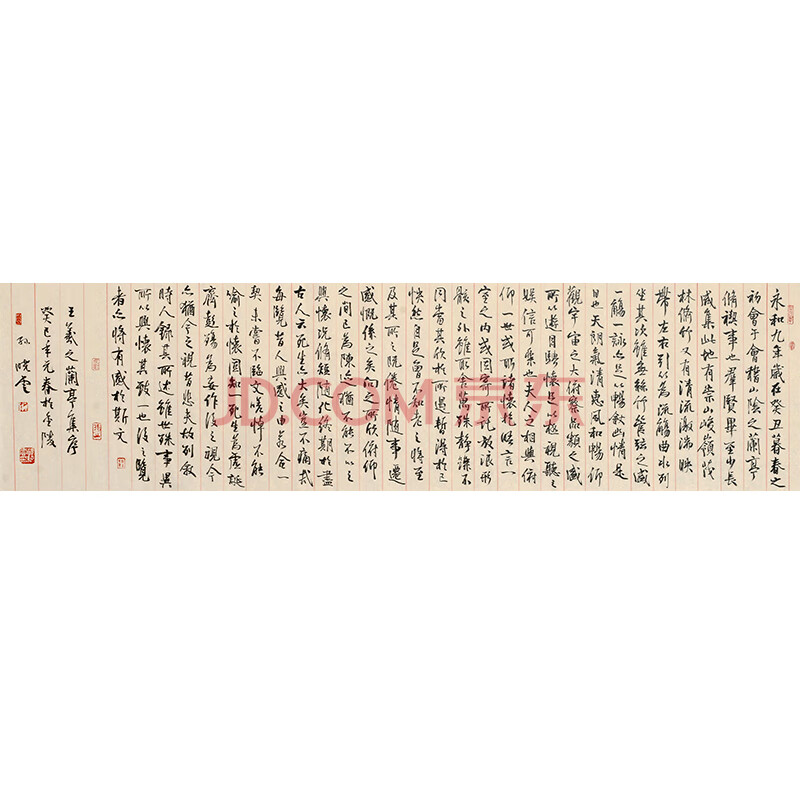 永和九年歲在癸丑暮春之
初會于會稽山陰之蘭亭
脩禊事也羣賢畢至少長
咸集此地有崇山峻嶺茂
林脩竹又有清流激湍映
帶左右引以為流觴曲水列
坐其次雖無絲竹管弦之盛
一觴一詠亦足以暢敘幽情是
日也天朗氣清惠風和暢仰
觀宇宙之大俯察品類之盛
所以遊目騁懷足以極視聽之
娛信可樂也夫人之相與俯
仰一世或取諸懷抱晤言一
室之內或因寄所託放浪形
骸之外雖取舍萬殊靜躁不
同當其欣於所遇暫得於己
怏然自足曾不知老之將至
及其所之既倦情隨事遷
感慨係之矣向之所欣俯仰
之間已為陳迹猶不能不以之
興懷況脩短隨化終期於盡
古人云死生亦大矣豈不痛哉
每覽昔人興感之由若合一
契未嘗不臨文嗟悼不能
喻之於懷固知死生為虛誕
齊彭殤為妄作後之視今
亦猶今之視昔悲夫故列敘
時人錄其所述雖世殊事異
所以興懷其致一也後之覽
者亦將有感於斯文
王羲之蘭亭集序
癸巳年元春於金陵
孙晓雲
JD.COM 京东